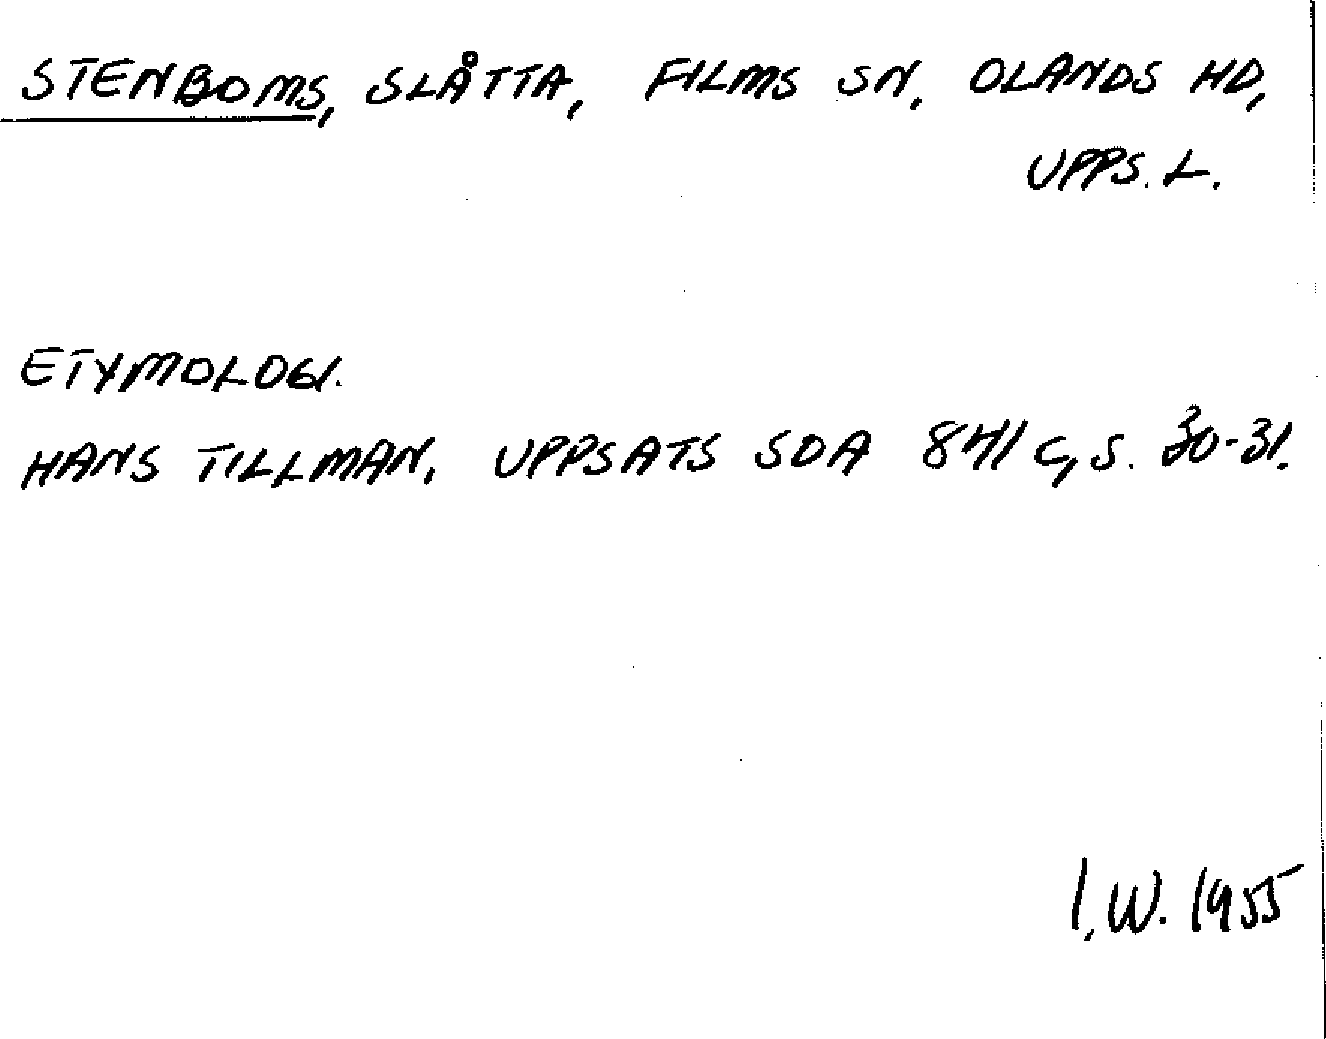 STENBOMS, SLÅTTA, FILMS SN. OLANDS HD,
UPPS. L.
ETYMOLOGI.
HANS TILLMAN. UPPSATS SOA 841 C, S. 30-31.
I.W. 1955